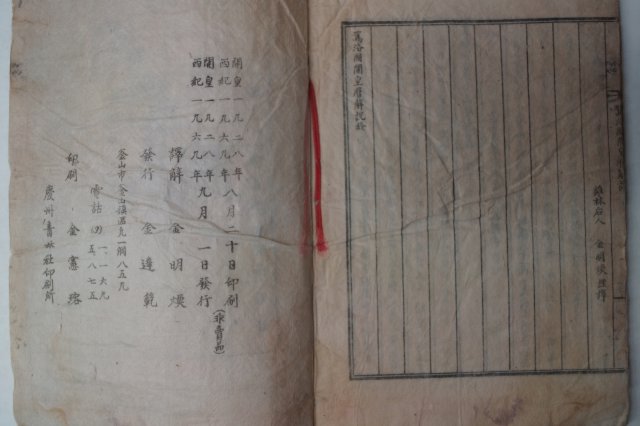 雞林后人 金明煥
駕洛國開皇曆解説終
開皇一九二八年八月二十日印刷
西紀一九六九年
開皇一九二八年九月一日發行
西紀一九六九年
(非賣品)
譯解 金明煥
發行 金達範
釜山市釜山鎭區凡一洞八五九
電話 一一六九
五八七五
印刷 金憲瑢
慶州靑林社印刷所